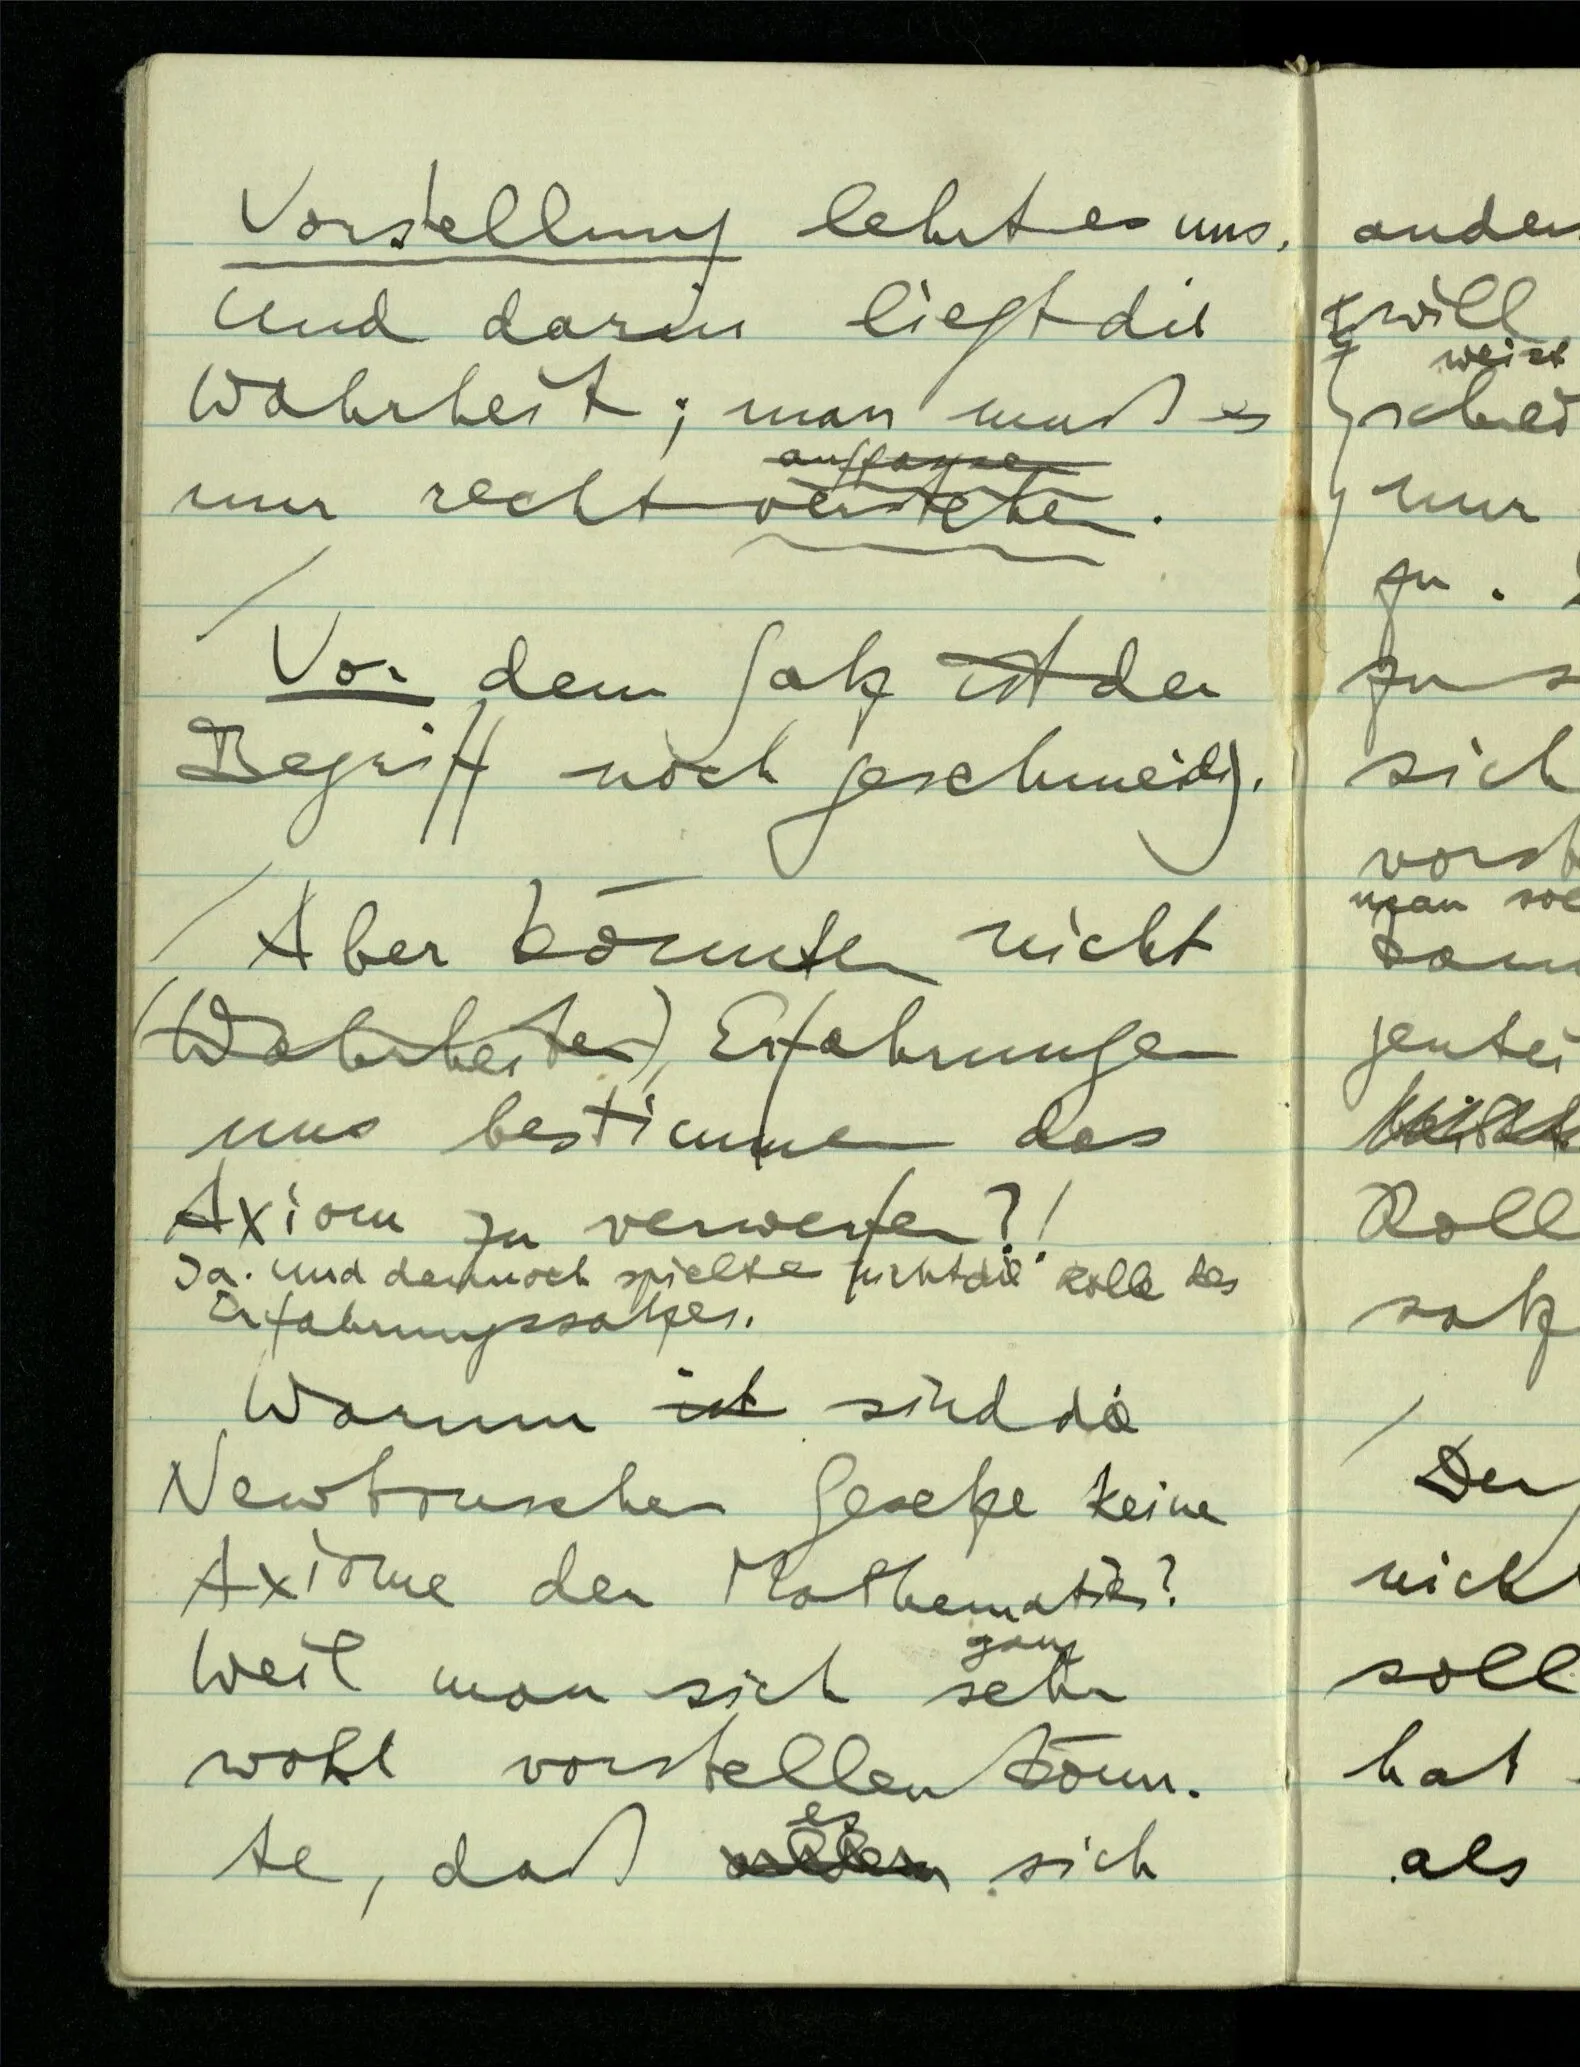 Vorstellung lehrt es uns.
Und darin liegt die
Wahrheit; man muß es
auffassen
nur recht verstehen.
Vor dem Satz ist der
Begriff noch geschmeidig.
Aber könnten nicht
(Wahrheiten) Erfahrungen
uns bestimmen das
Axiom zu verwerfen?!
Ja. Und dennoch spielt es nicht die Rolle des
Erfahrungssatzes.
Warum ist sind die
Newtonschen Gesetze keine
Axiome der Mathematik?
ganz
Weil man sich sehr
wohl vorstellen könn-
es
te, daß sich
will
weist
nur
zu.
sich
man
Roll
satz
Der
nicht
soll
hat
als